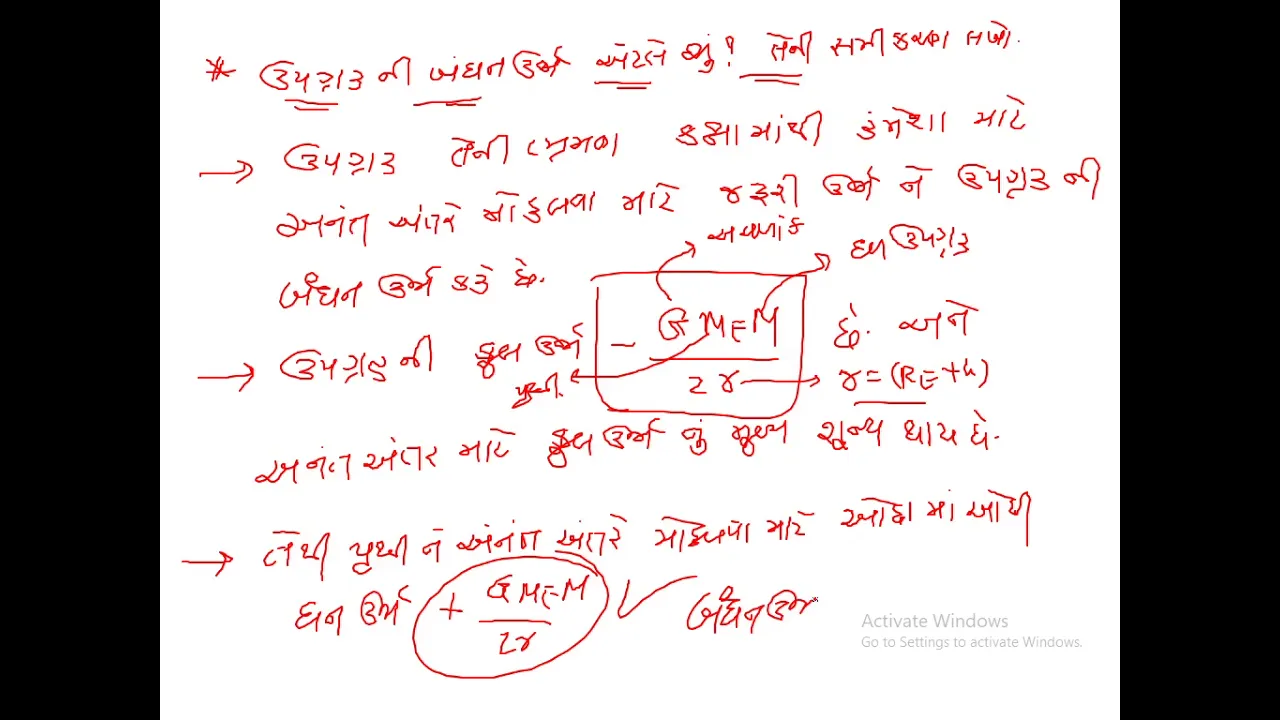 * ઉપગ્રહ ની બંધન ઉર્જા એટલે શું? તેની સમીકરણ લખો.
→ ઉપગ્રહ તેની ભ્રમણ કક્ષામાંથી હંમેશા માટે
અનંત અંતરે મોકલવા માટે જરૂરી ઉર્જા ને ઉપગ્રહ ની
અચળાંક
દળ ઉપગ્રહ
બંધન ઉર્જા કહે છે.
→ ઉપગ્રહ ની કુલ ઉર્જા - G M_E M / 2r છે. અને
પૃથ્વી. r = (R_E + h)
અનંત અંતર માટે કુલ ઉર્જા નું મૂલ્ય શૂન્ય થાય છે.
→ તેથી પૃથ્વી ને અનંત અંતરે મોકલવા માટે ઓછા માં ઓછી
ધન ઉર્જા + G M_E M / 2r ✓ બંધન ઉર્જ
Activate Windows
Go to Settings to activate Windows.